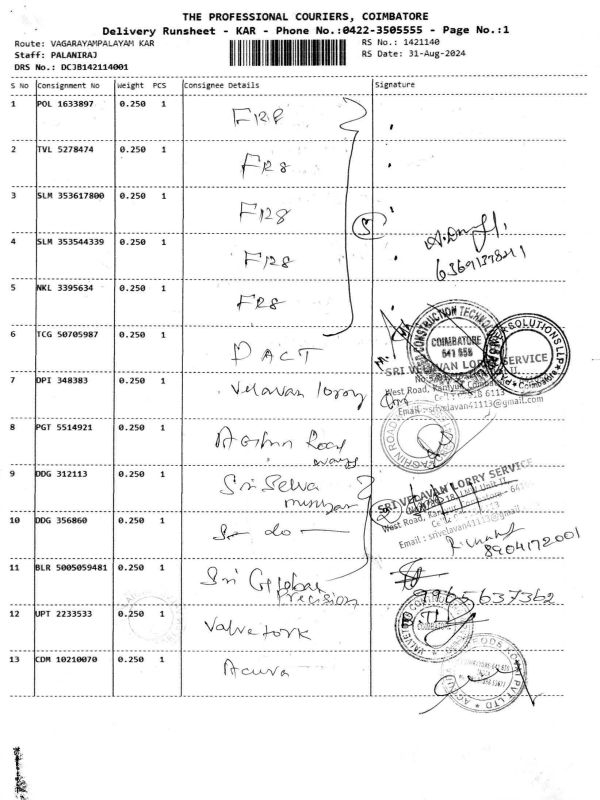 THE PROFESSIONAL COURIERS, COIMBATORE
Delivery Runsheet - KAR - Phone No.:0422-3505555 - Page No.:1
Route: VAGARAYAMPALAYAM KAR
RS No.: 1421140
Staff: PALANIRAJ
RS Date: 31-Aug-2024
DRS No.: DCJB142114001
S No Consignment No Weight PCS Consignee Details Signature
1 POL 1633897 0.250 1 FR8
2 TVL 5278474 0.250 1 FR8
3 SLM 353617800 0.250 1 FR8
5
4 SLM 353544339 0.250 1 FR8
5 NKL 3395634 0.250 1 FR8
6 TCG 50705987 0.250 1 DACT
CONSTRUCTION TECHNOLOGY
COIMBATORE
641 658
SOLUTIONS LLP
Coimbatore
SRI VELAVAN LORRY SERVICE
7 DPI 348383 0.250 1 Velavan lorry
West Road, Kaniyur, Coimbatore
Email : srivelavan41113@gmail.com
8 PGT 5514921 0.250 1 Aghin Road ways
AGHIN ROAD
9 DDG 312113 0.250 1 Sri Selva
SRI VELAVAN LORRY SERVICE
West Road, Kaniyur, Coimbatore - 641
Email : srivelavan41113@gmail.com
10 DDG 356860 0.250 1 — do —
8904172001
11 BLR 5005059481 0.250 1 Sri Global Precision
9965637362
12 UPT 2233533 0.250 1 Valvetork
13 CDM 10210070 0.250 1 Acuva
PVT LTD